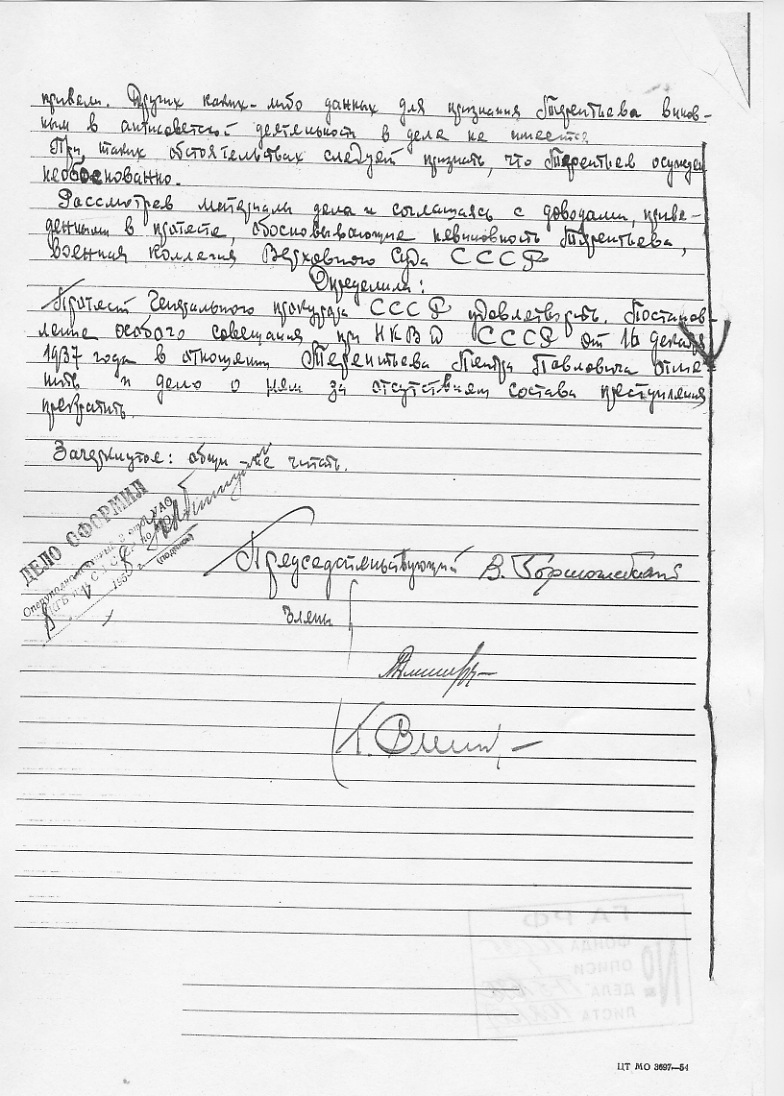 привели. Других каких-либо данных для признания Терентьева винов-
ным в антисоветской деятельности в деле не имеется.
При таких обстоятельствах следует признать, что Терентьев осужден
необоснованно.
Рассмотрев материалы дела и соглашаясь с доводами, приве-
денными в протесте, обосновывающие невиновность Терентьева,
военная коллегия Верховного Суда СССР
Определила:
Протест Генерального прокурора СССР удовлетворить. Постанов-
ление особого совещания при НКВД СССР от 16 декабря
1937 года в отношении Терентьева Петра Павловича отме
нить и дело о нем за отсутствием состава преступления
прекратить.
Зачеркнутое: общи - не читать.
ДЕЛО ОФОРМИЛ
(подпись)
Председательствующий В.
Члены
ГА РФ
ФОНДА
№ ОПИСИ
ДЕЛА
ЛИСТА
ЦТ МО 3697—54